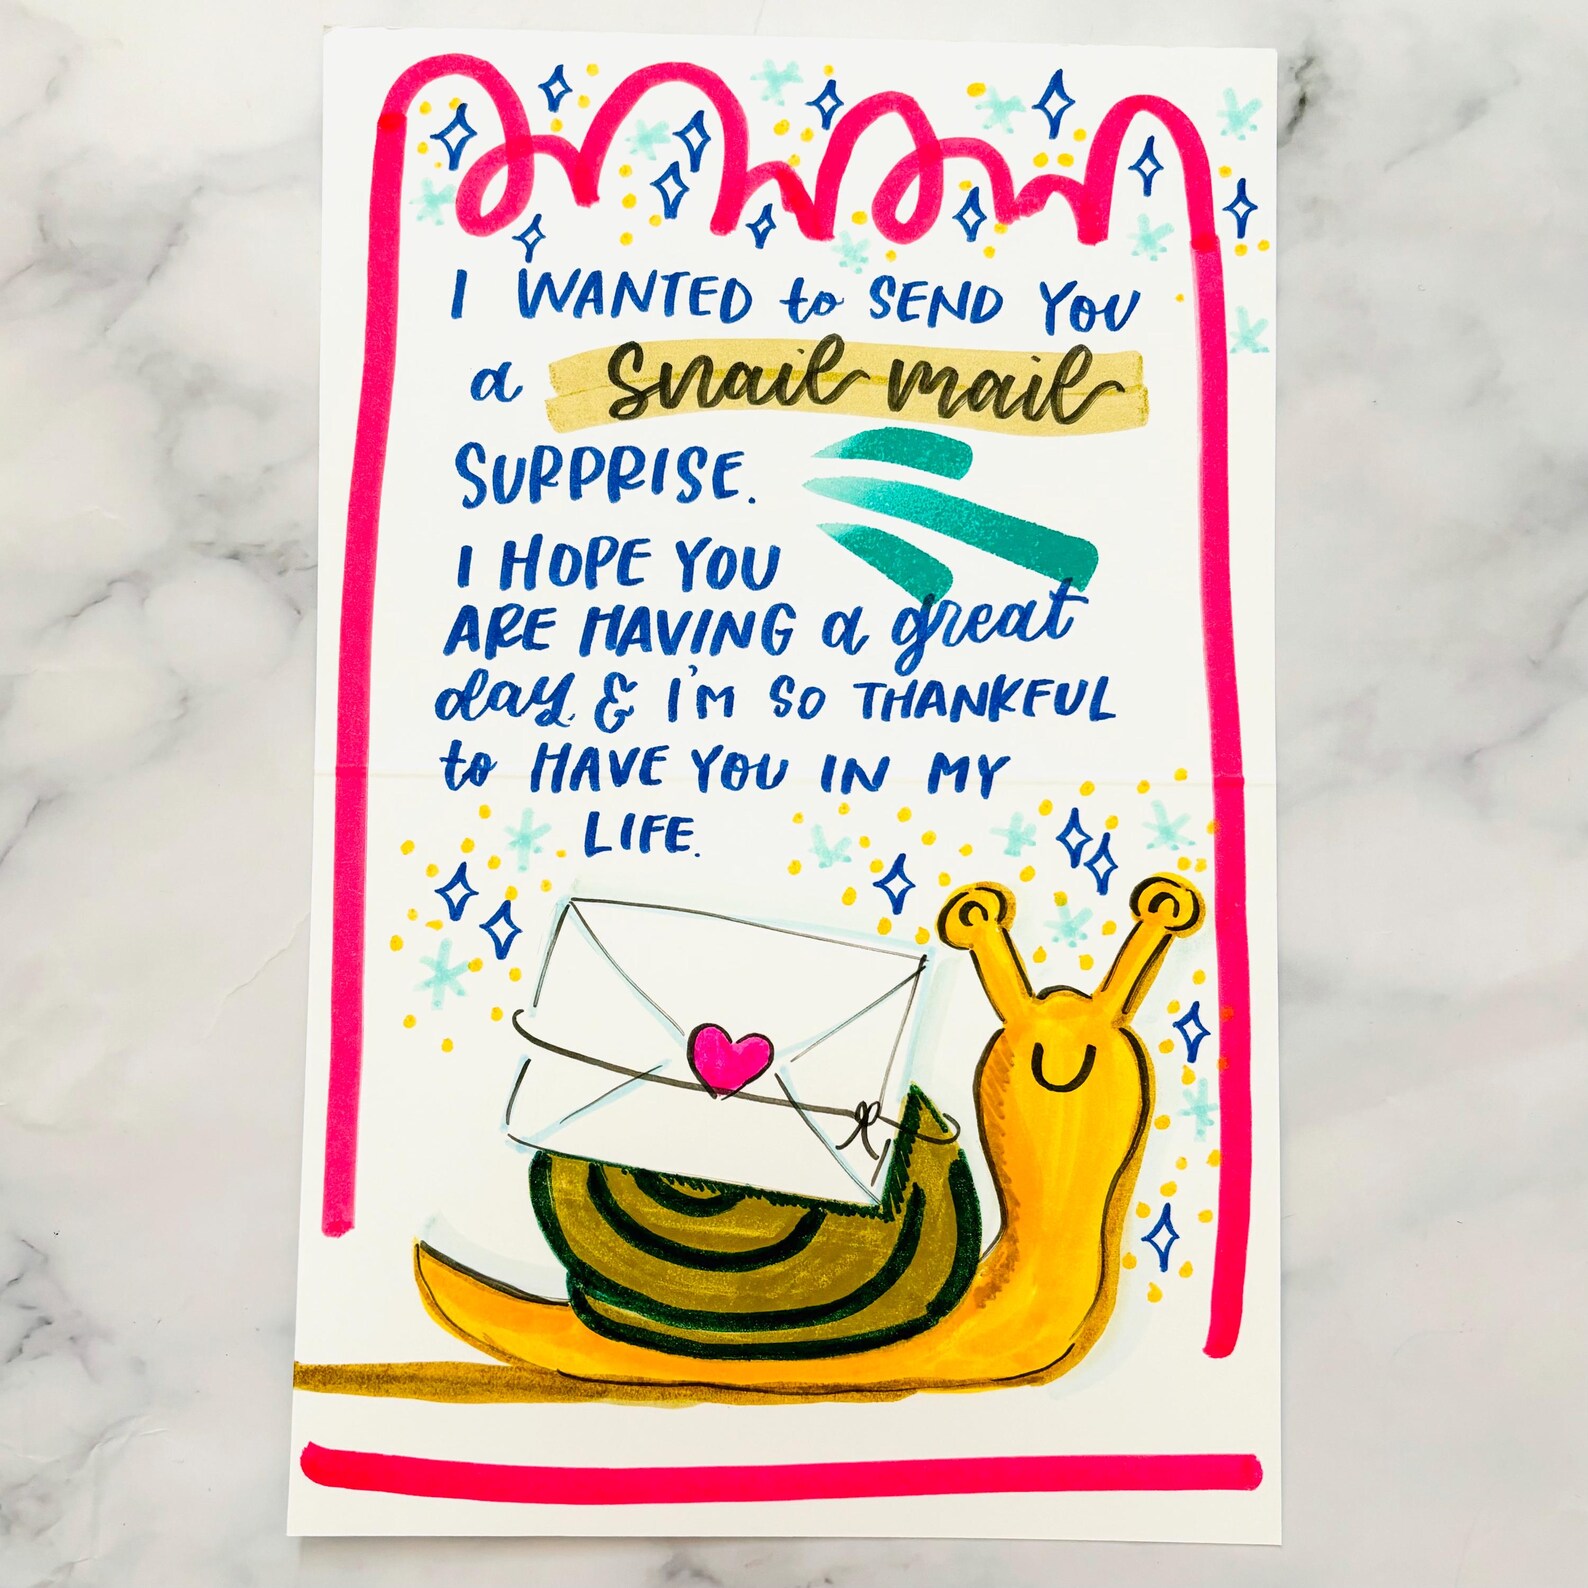 I WANTED to SEND YOU
a snail mail
SURPRISE.
I HOPE YOU
ARE HAVING a great
day & I'M SO THANKFUL
to HAVE YOU IN MY
LIFE.